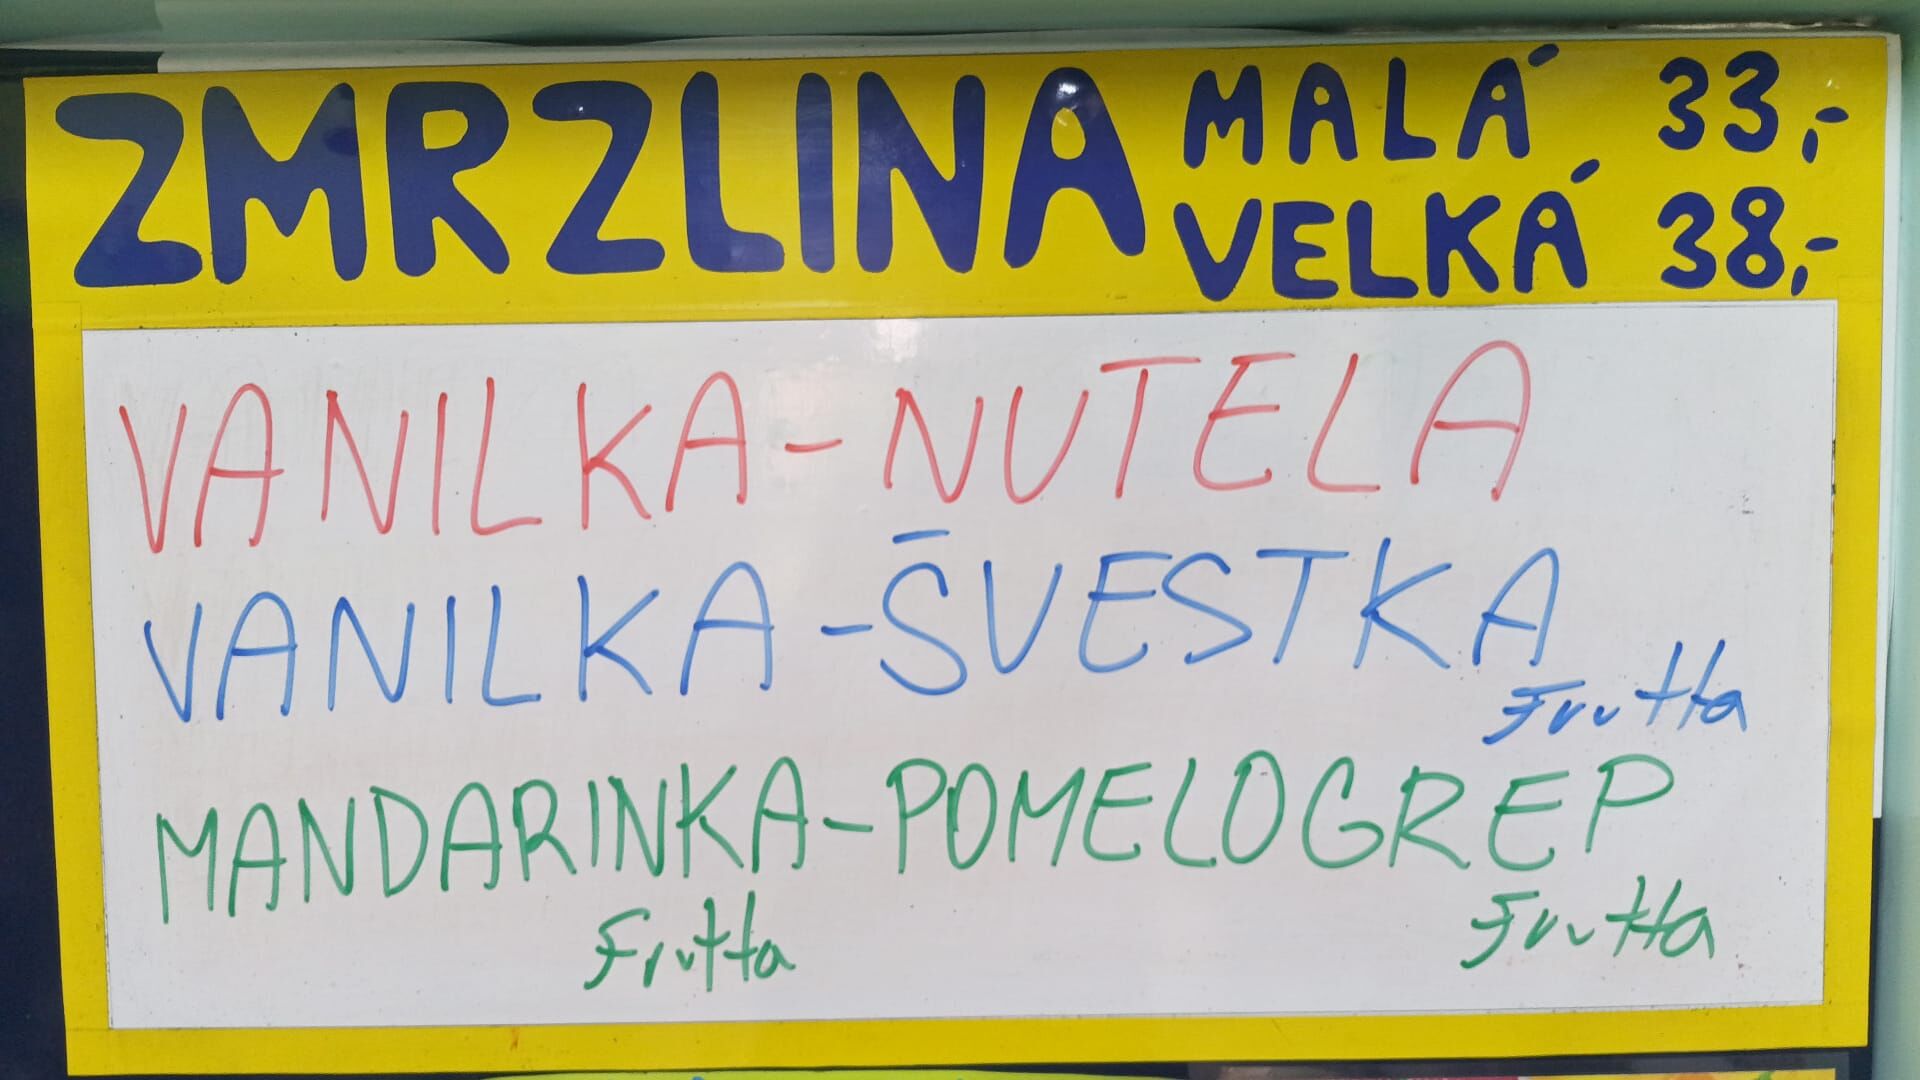 ZMRZLINA MALÁ 33,-
VELKÁ 38,-
VANILKA-NUTELA
VANILKA-ŠVESTKA
Frutta
MANDARINKA-POMELOGREP
Frutta Frutta